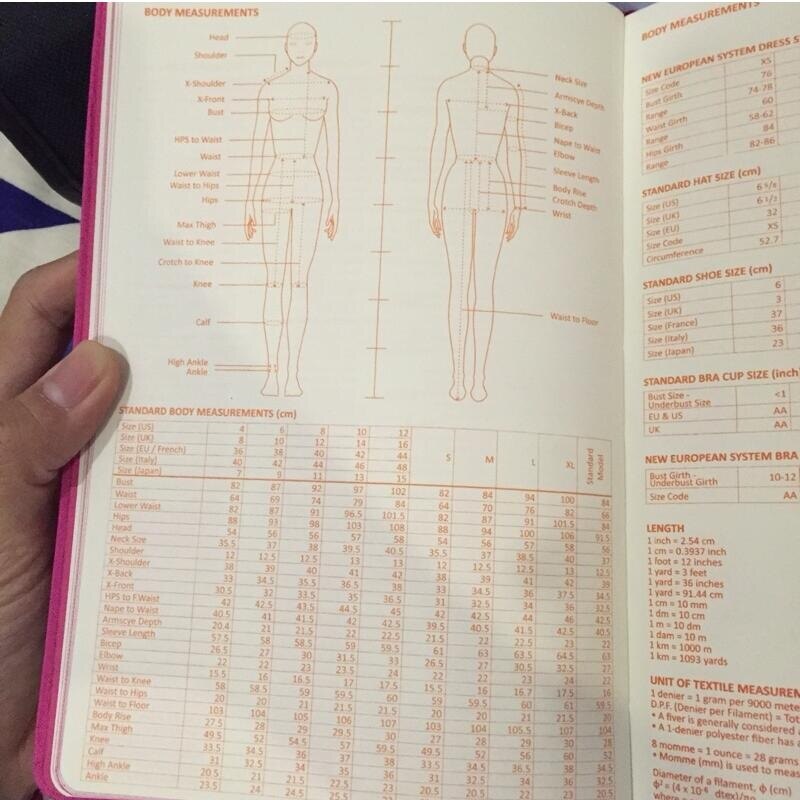 BODY MEASUREMENTS
Head
Shoulder
X-Shoulder
X-Front
Bust
HPS to Waist
Waist
Lower Waist
Waist to Hips
Hips
Max Thigh
Waist to Knee
Crotch to Knee
Knee
Calf
High Ankle
Ankle
Neck Size
Armscye Depth
X-Back
Bicep
Nape to Waist
Elbow
Sleeve Length
Body Rise
Crotch Depth
Wrist
Waist to Floor
STANDARD BODY MEASUREMENTS (cm)
Size (US) 4 6 8 10 12
Size (UK) 8 10 12 14 16
Size (EU / French) 36 38 40 42 44
Size (Italy) 40 42 44 46 48
Size (Japan) 7 9 11 13 15
S M L XL Standard Model
Bust 82 87 92 97 102 82 84 94 100 84
Waist 64 69 74 79 84 64 70 76 82 66
Lower Waist 82 87 91 96.5 101.5 82 87 91 101.5 84
Hips 88 93 98 103 108 88 94 100 106 91.5
Head 54 56 56 57 58 54 56 57 58 56
Neck Size 35.5 37 38 39.5 40.5 35.5 37 38.5 40 37
Shoulder 12 12.5 12.5 13 13 12 12.5 12.5 13 12.5
X-Shoulder 38 39 40 41 42 38 39 41 42 39
X-Back 33 34.5 35.5 36.5 38 33 34.5 36 37.5 34.5
X-Front 30.5 32 33.5 35 36.5 31 32.5 34 36 32.5
HPS to F.Waist 42 42.5 43.5 44.5 45 42 42.5 44 46 42.5
Nape to Waist 40.5 41 41.5 42 42.5 39.5 40.5 41.5 42.5 40.5
Armscye Depth 20.4 21 21.5 22 22.5 21.5 22 22.5 23 22
Sleeve Length 57.5 58 58.5 59 59.5 61 63 63.5 64.5 63
Bicep 26.5 27 30 31.5 33 26.5 27 30.5 32.5 27
Elbow 22 22 23 23.5 24 22 22 23 24 22
Wrist 15.5 16 16.5 17 17.5 15.5 16 16.7 17.5 16
Waist to Knee 58 58.5 59 59.5 60 59 59.5 60 61 59.5
Waist to Hips 20 20 21 21.5 21.5 20 20 21 21.5 20
Waist to Floor 103 104 105 106 107 103 104 105.5 107 104
Body Rise 27.5 28 29 29.5 30 27 28 29 30 28
Max Thigh 49.5 52 54.5 57 59.5 49.5 52 56 60 52
Knee 33.5 34.5 36 37 38 33.5 34.5 36.5 38 34.5
Calf 31 32.5 34 35 36 31 32.5 34 36 32.5
High Ankle 20.5 21 21.5 22.5 23 20.5
Ankle 23.5 24 24.5 25.5
BODY MEASUREMENTS
NEW EUROPEAN SYSTEM DRESS
Size Code XS
Bust Girth 76
Range 74-78
Waist Girth 60
Range 58-62
Hips Girth 84
Range 82-86
STANDARD HAT SIZE (cm)
Size (US) 6 5/8
Size (UK) 6 1/2
Size (EU) 32
Size Code XS
Circumference 52.7
STANDARD SHOE SIZE (cm)
Size (US) 6
Size (UK) 3
Size (France) 37
Size (Italy) 36
Size (Japan) 23
STANDARD BRA CUP SIZE (inch
Bust Size - <1
Underbust Size
EU & US AA
UK AA
NEW EUROPEAN SYSTEM BRA
Bust Girth - 10-12
Underbust Girth
Size Code AA
LENGTH
1 inch = 2.54 cm
1 cm = 0.3937 inch
1 foot = 12 inches
1 yard = 3 feet
1 yard = 36 inches
1 yard = 91.44 cm
1 cm = 10 mm
1 dm = 10 cm
1 m = 10 dm
1 dam = 10 m
1 km = 1000 m
1 km = 1093 yards
UNIT OF TEXTILE MEASUREM
1 denier = 1 gram per 9000 mete
D.P.F. (Denier per Filament) = Tot
• A fiver is generally considered
• A 1-denier polyester fiber has a
8 momme = 1 ounce = 28 grams
• Momme (mm) is used to meas
Diameter of a filament, ϕ (cm)
ϕ² = (4 x 10⁻⁶ dtex)/πρ